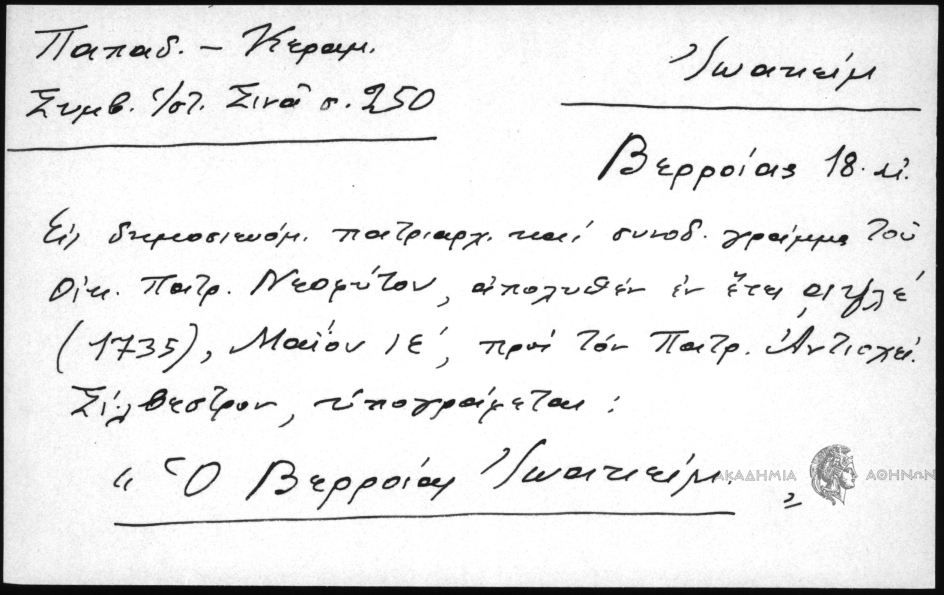 Παπαδ. – Κεραμ.
Συμβ. ἱ/στ. Σινᾶ σ. 250
Ἰωακείμ
Βερροίας 18. αἰ.
Εἰς δημοσιευόμ. πατριαρχ. καί συνοδ. γράμμα τοῦ
Οἰκ. Πατρ. Νεοφύτου, ἀπολυθέν ἐν ἔτει αψλέ
(1735), Μαΐου ιέ, πρός τόν Πατρ. Ἀντιοχεί.
Σίλβεστρον, ὑπογράφεται :
“ Ὁ Βερροίας Ἰωακείμ. „
ΑΚΑΔΗΜΙΑ ΑΘΗΝΩΝ